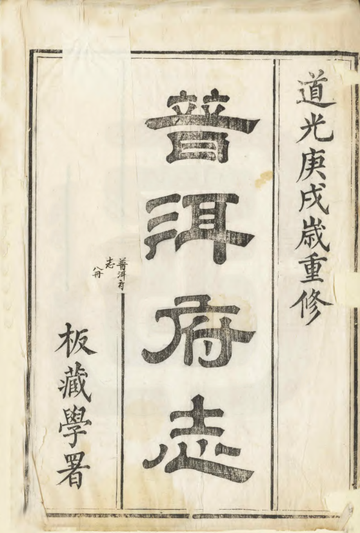 道光庚戌歲重修
普洱府志
普洱府
志 八冊
板藏學署